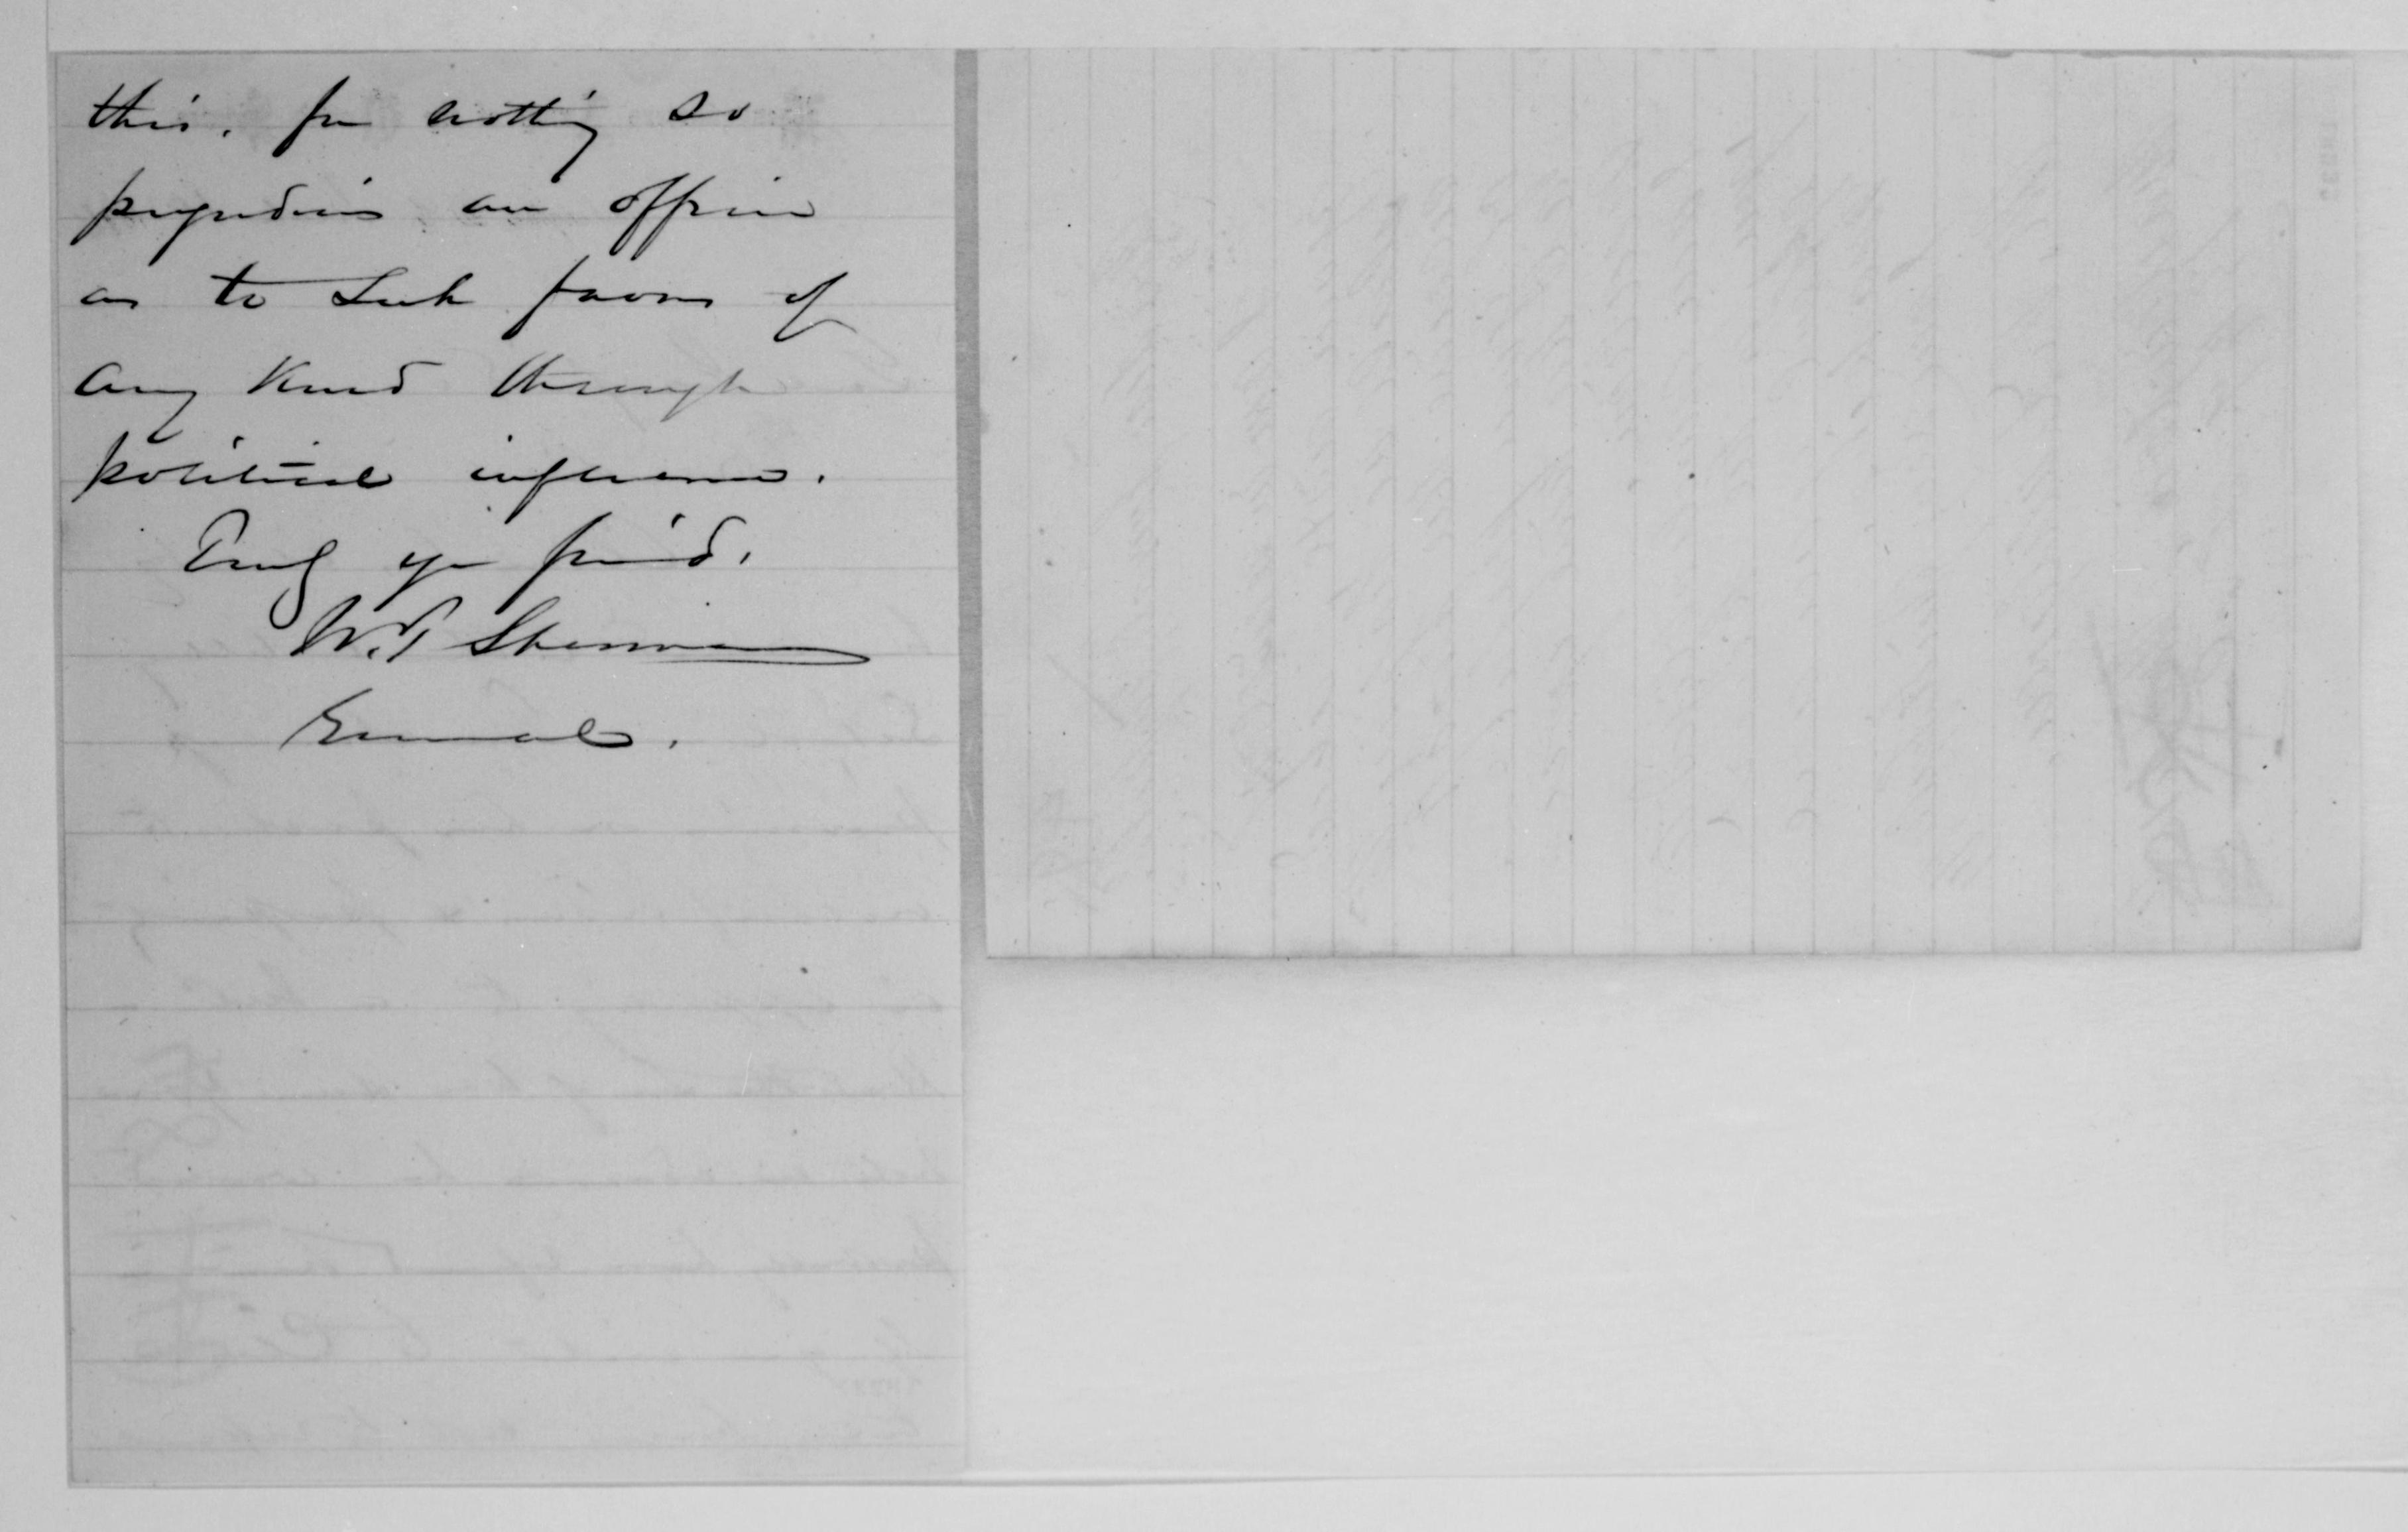 this, for nothing so
prejudices an officer
as to seek favors of
any kind through
political influence.
Truly yr friend,
W. T. Sherman
General.